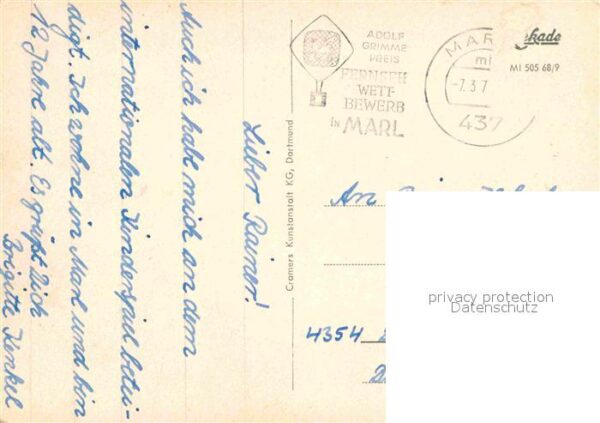 Lieber Rainer!
Auch ich habe mich an dem
internationalen Kinderspiel betei-
digt. Ich wohne in Marl und bin
12 Jahre alt. Es grüßt Dich
Brigitte Kenkel
Cramers Kunstanstalt KG, Dortmund
ADOLF
GRIMME
PREIS
FERNSEH
WETT-
BEWERB
in MARL
MAR
ml
-7.3.7
437
ekade
MI 505 68/9
An
4354
privacy protection
Datenschutz